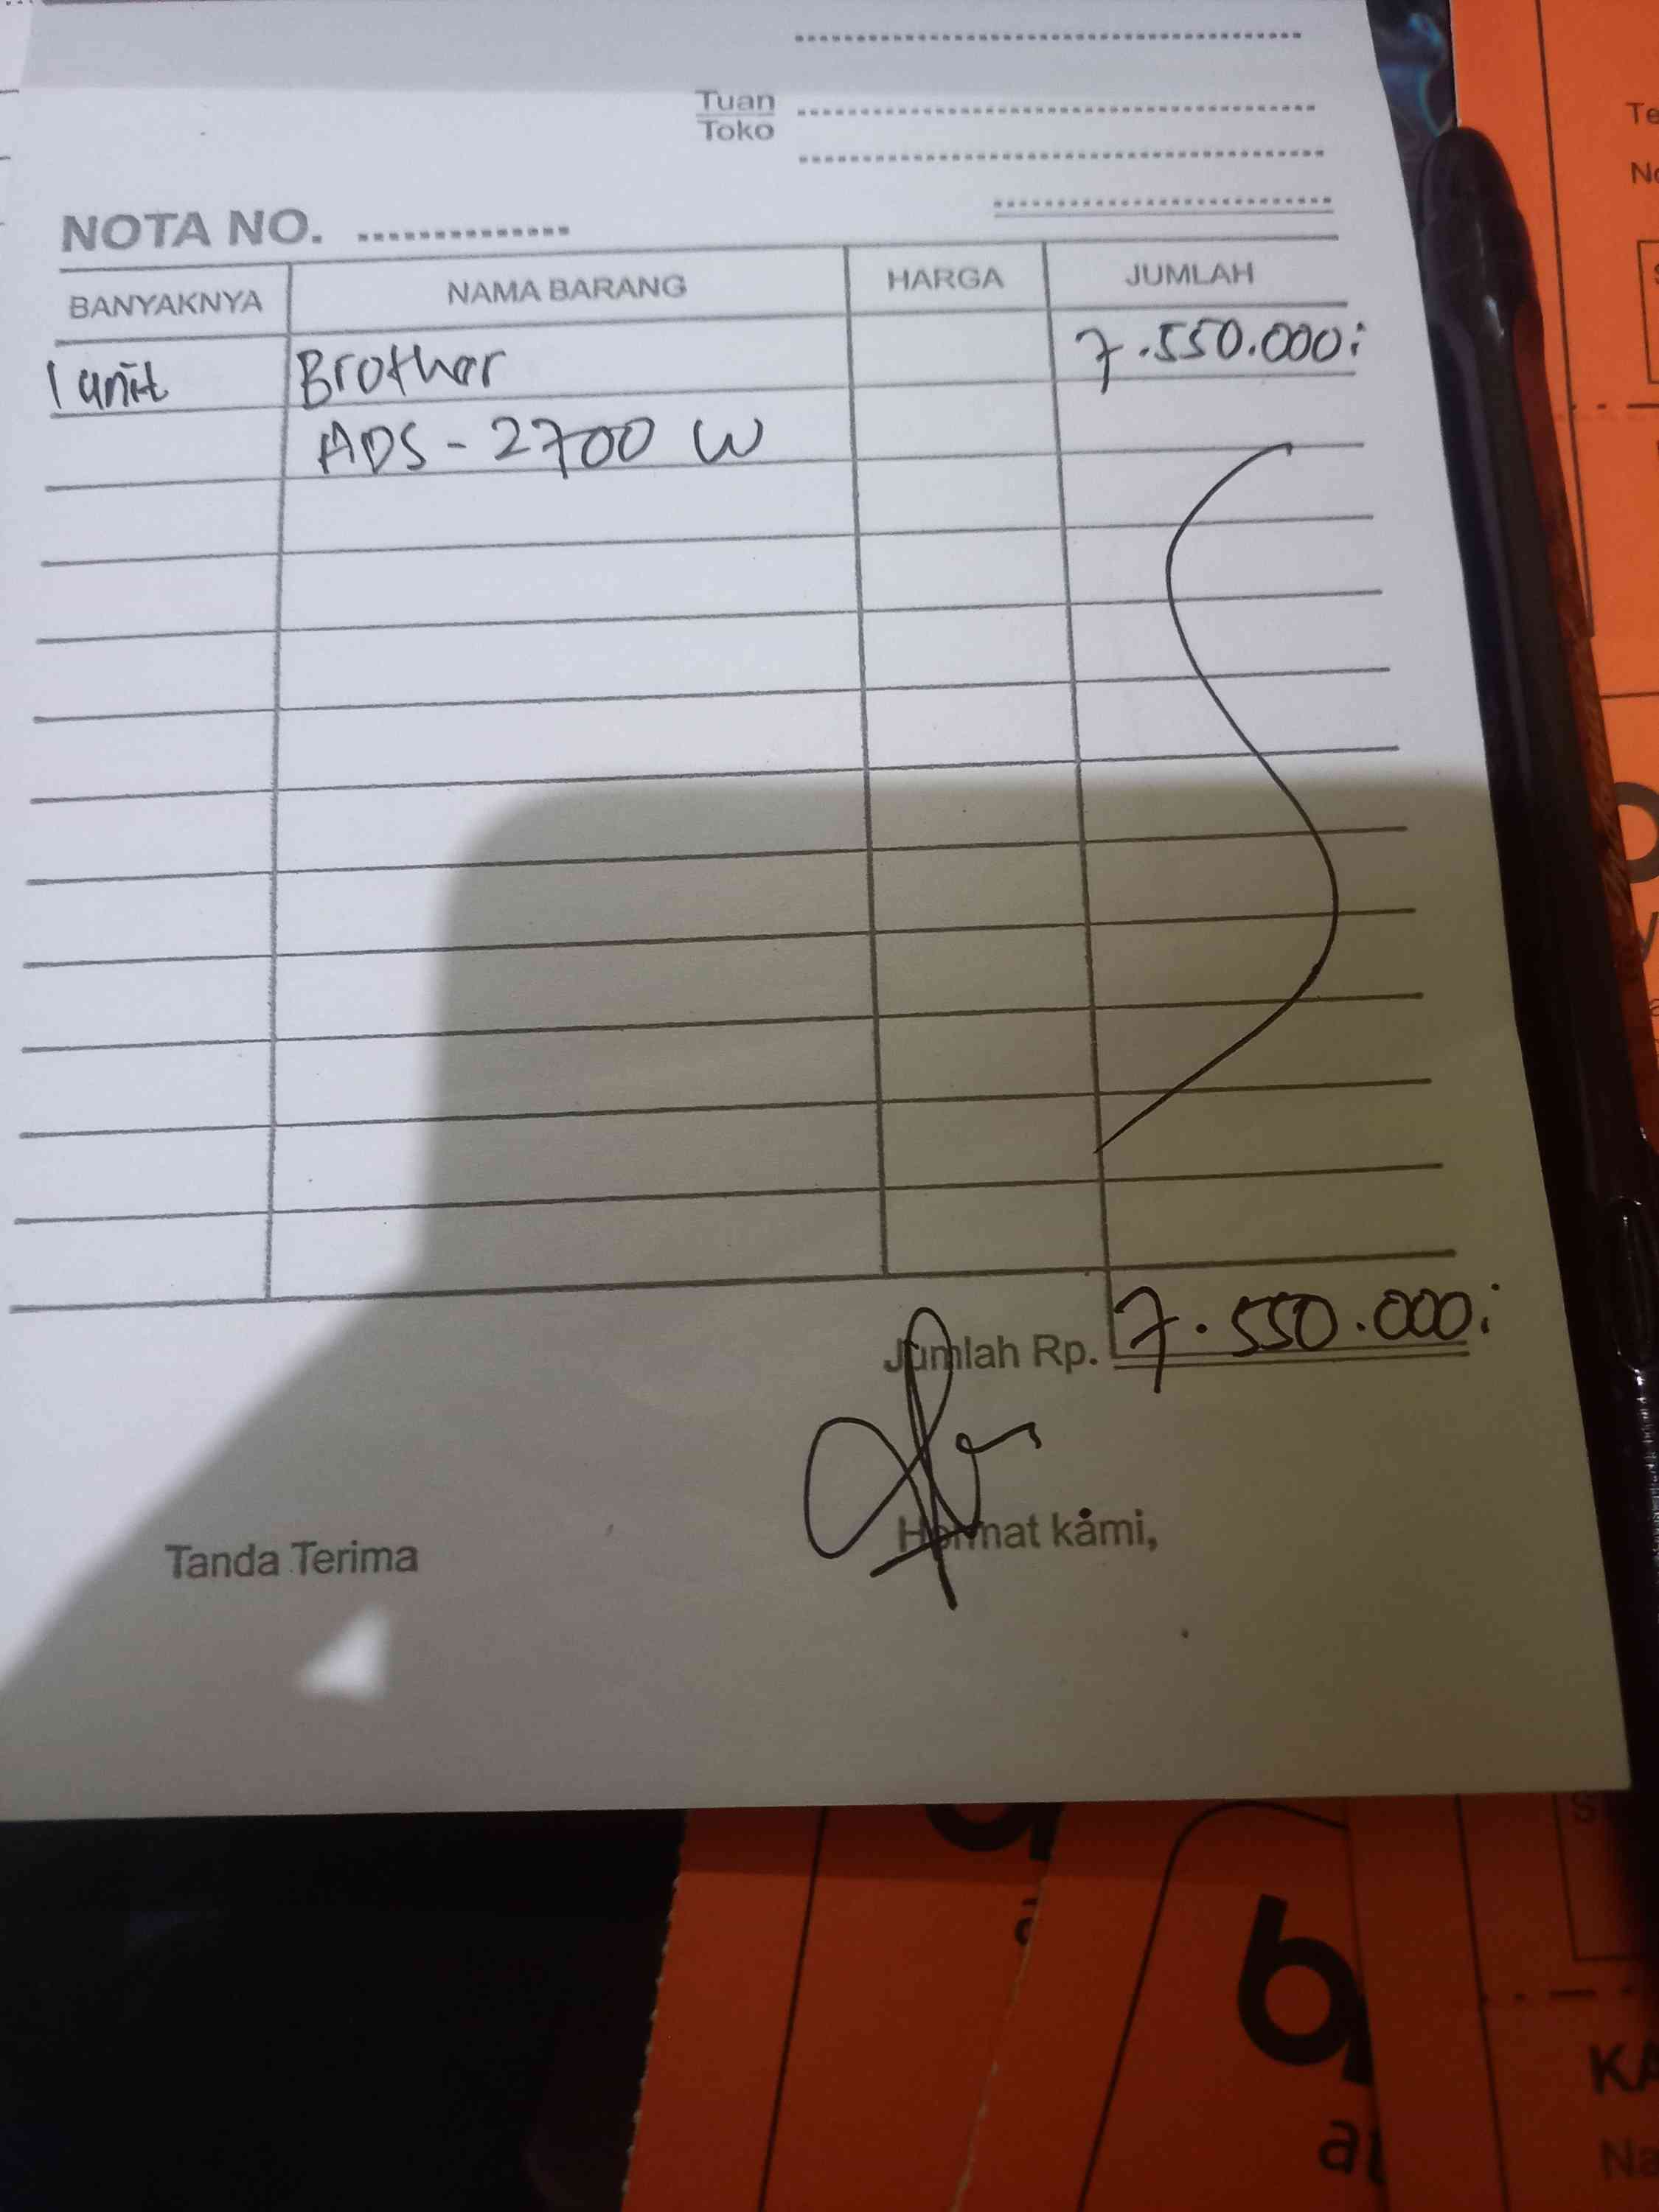 Tuan
Toko
NOTA NO. ..............
BANYAKNYA NAMA BARANG HARGA JUMLAH
1 unit Brother 7.550.000;
ADS - 2700 W
Jumlah Rp. 7.550.000;
Tanda Terima Hormat kami,
b
KA
Na
Te
No